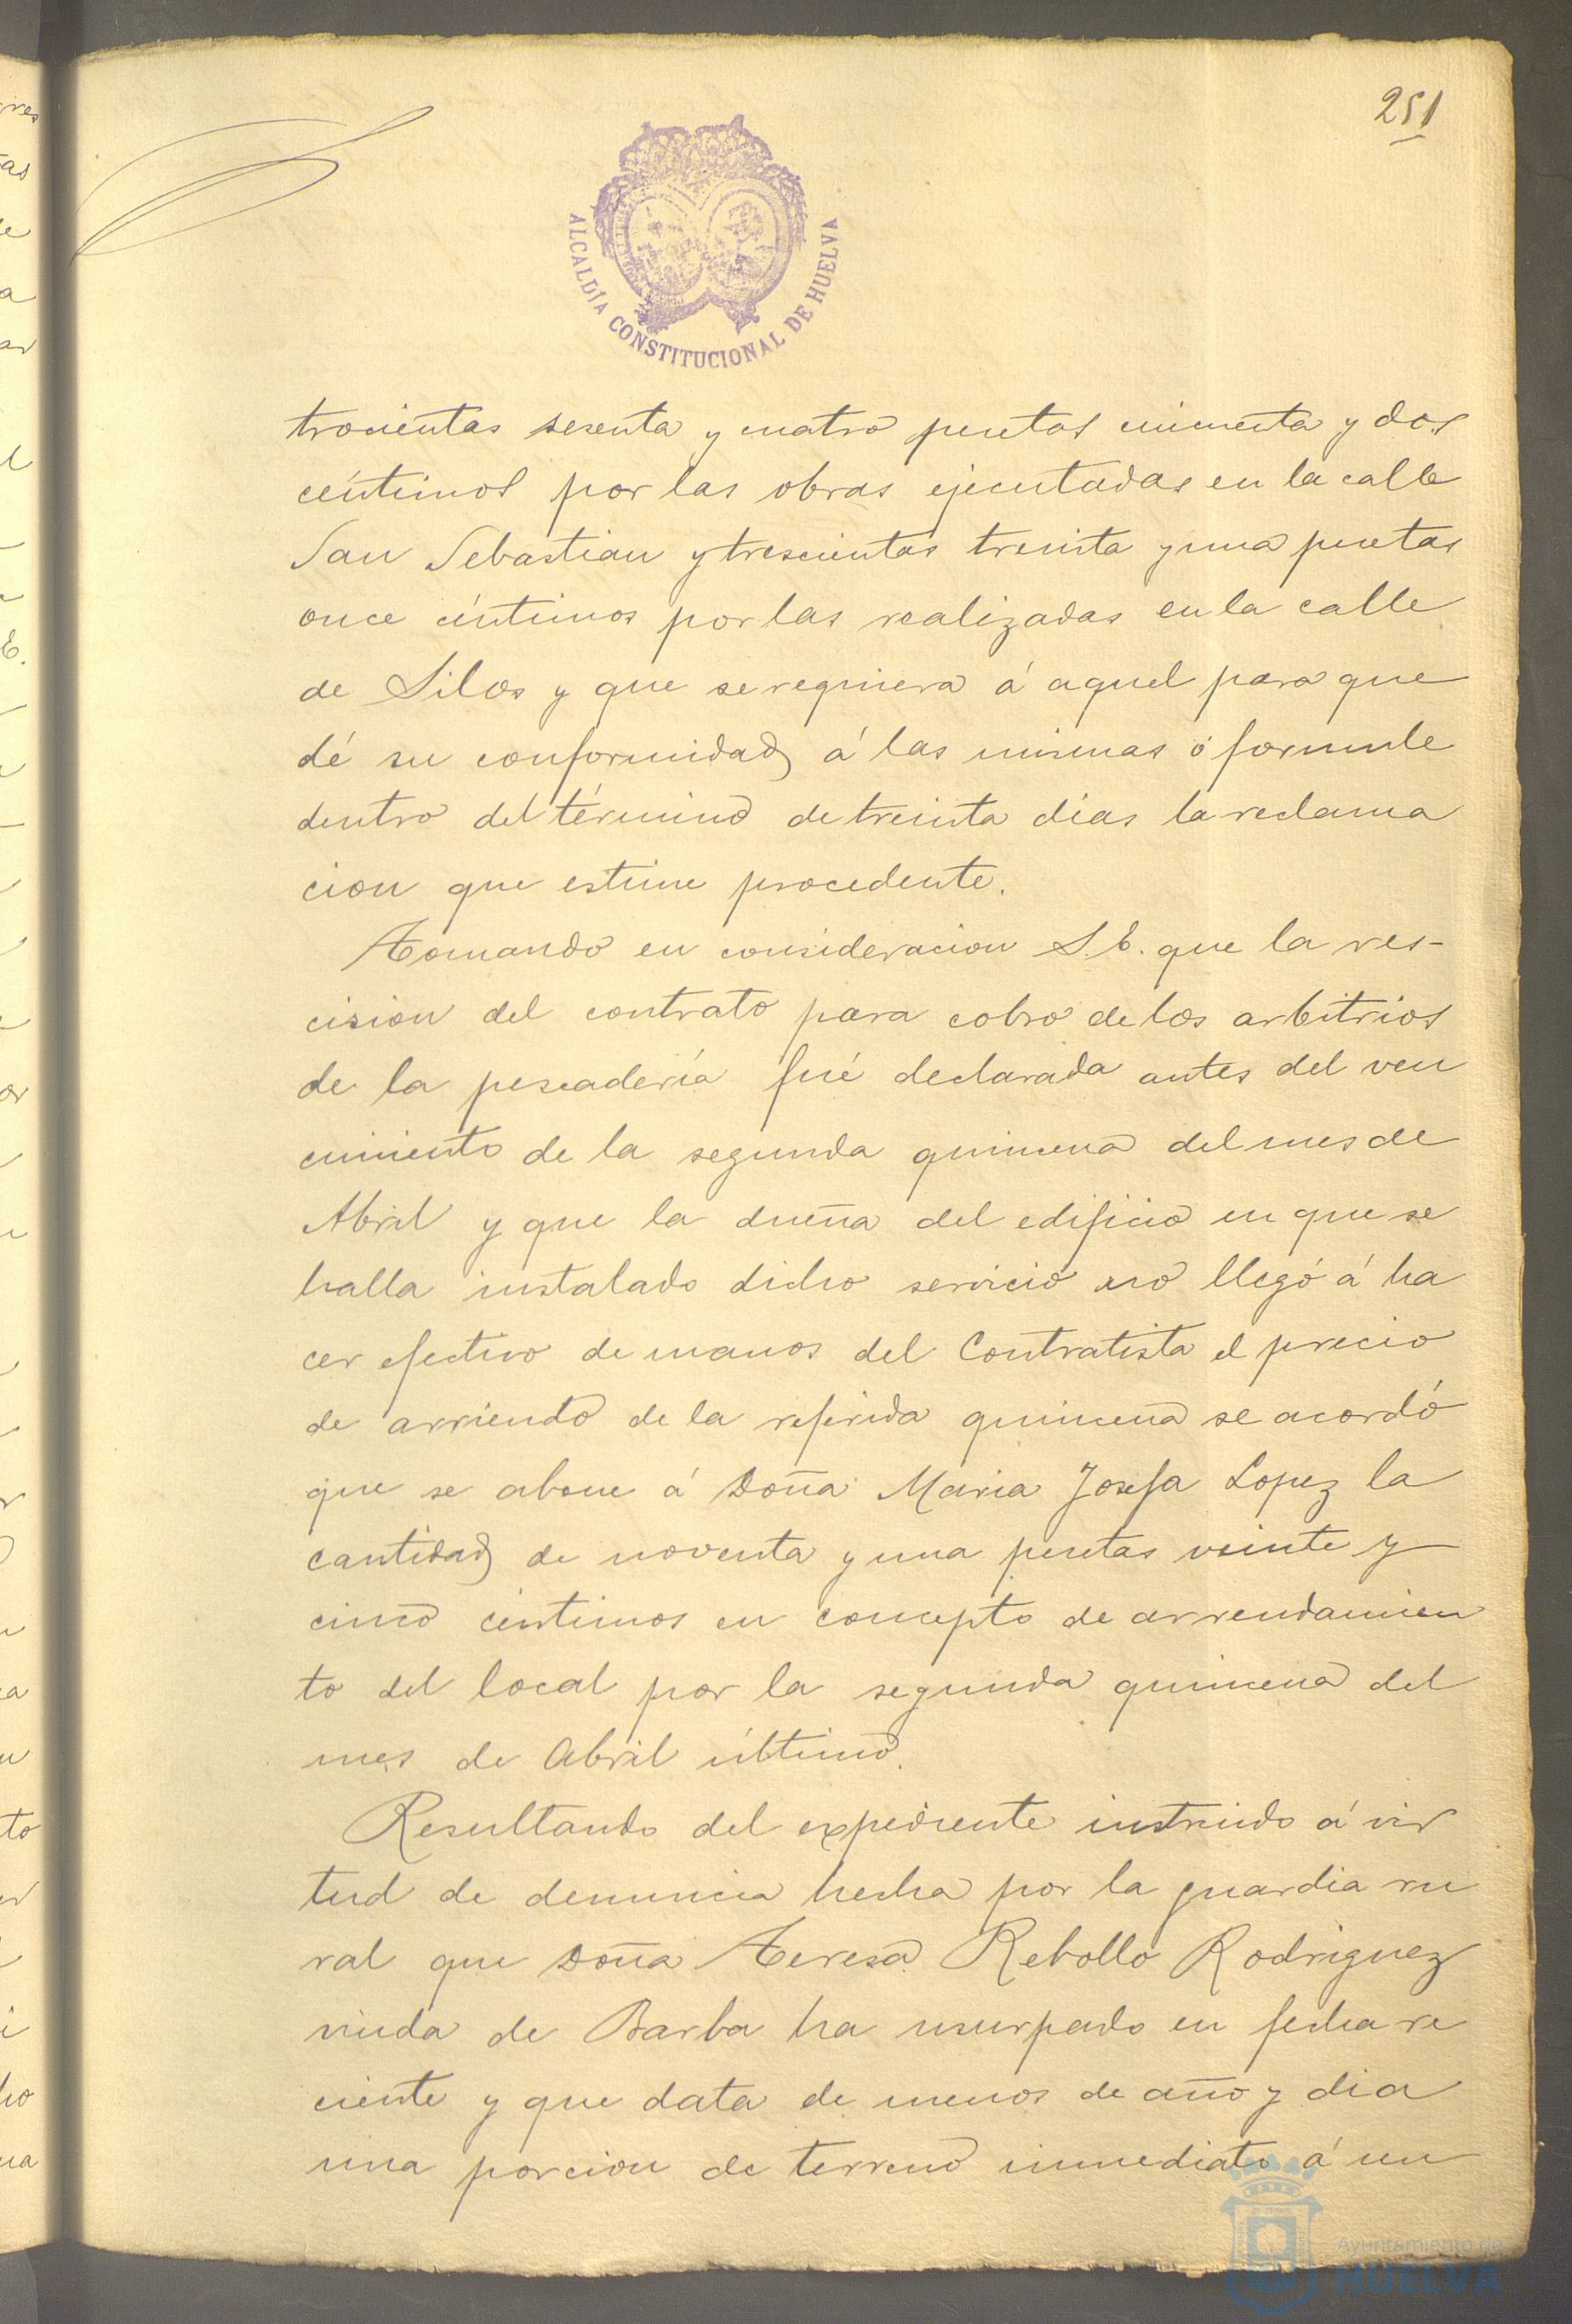 251
ALCALDÍA CONSTITUCIONAL DE HUELVA
trocientas sesenta y cuatro pesetas cincuenta y dos
céntimos por las obras ejecutadas en la calle
San Sebastian y trescientas treinta y una pesetas
once céntimos por las realizadas en la calle
de Silos y que se requiera á aquel para que
dé su conformidad á las mismas ó formule
dentro del término de treinta dias la reclama
cion que estime procedente.
Tomando en consideracion S.E. que la res-
cision del contrato para cobro de los arbitrios
de la pescadería fué declarada antes del ven
cimiento de la segunda quincena del mes de
Abril y que la dueña del edificio en que se
halla instalado dicho servicio no llegó á ha
cer efectivo de manos del Contratista el precio
de arriendo de la referida quincena se acordó
que se abone á Doña Maria Josefa Lopez la
cantidad de noventa y una pesetas veinte y
cinco céntimos en concepto de arrendamien
to del local por la segunda quincena del
mes de Abril último.
Resultando del expediente instruido á vir
tud de denuncia hecha por la guardia ru
ral que Doña Teresa Rebollo Rodriguez
viuda de Barba ha usurpado en fecha re
ciente y que data de menos de año y dia
una porcion de terreno inmediato á un
Ayuntamiento de
HUELVA